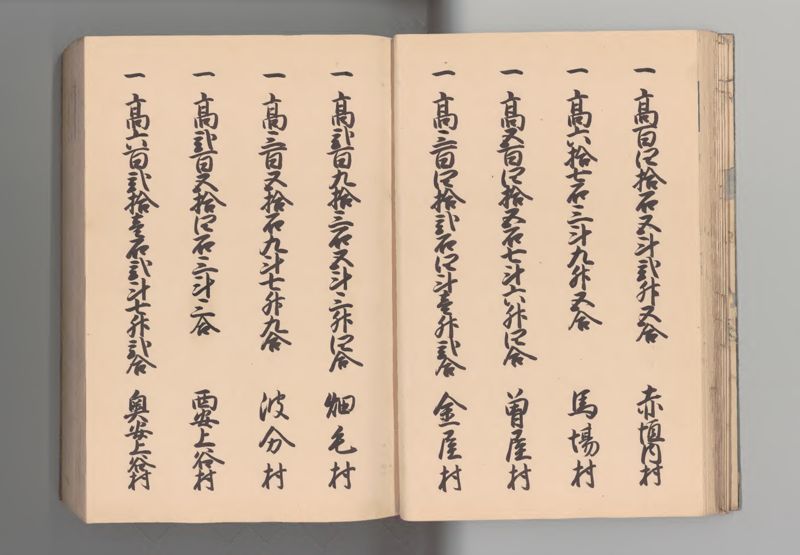 一 高百四拾石五斗弐升五合 赤垣内村
一 高六拾七石三斗九升五合 馬場村
一 高五百四拾五石七斗六升四合 曽屋村
一 高三百四拾弐石四斗壱升弐合 金屋村
一 高弐百九拾三石五斗三升四合 畑毛村
一 高三百五拾石九斗七升九合 波分村
一 高弐百五拾四石三斗三合 西安上谷村
一 高六百弐拾壱石弐斗七升弐合 奥安上谷村